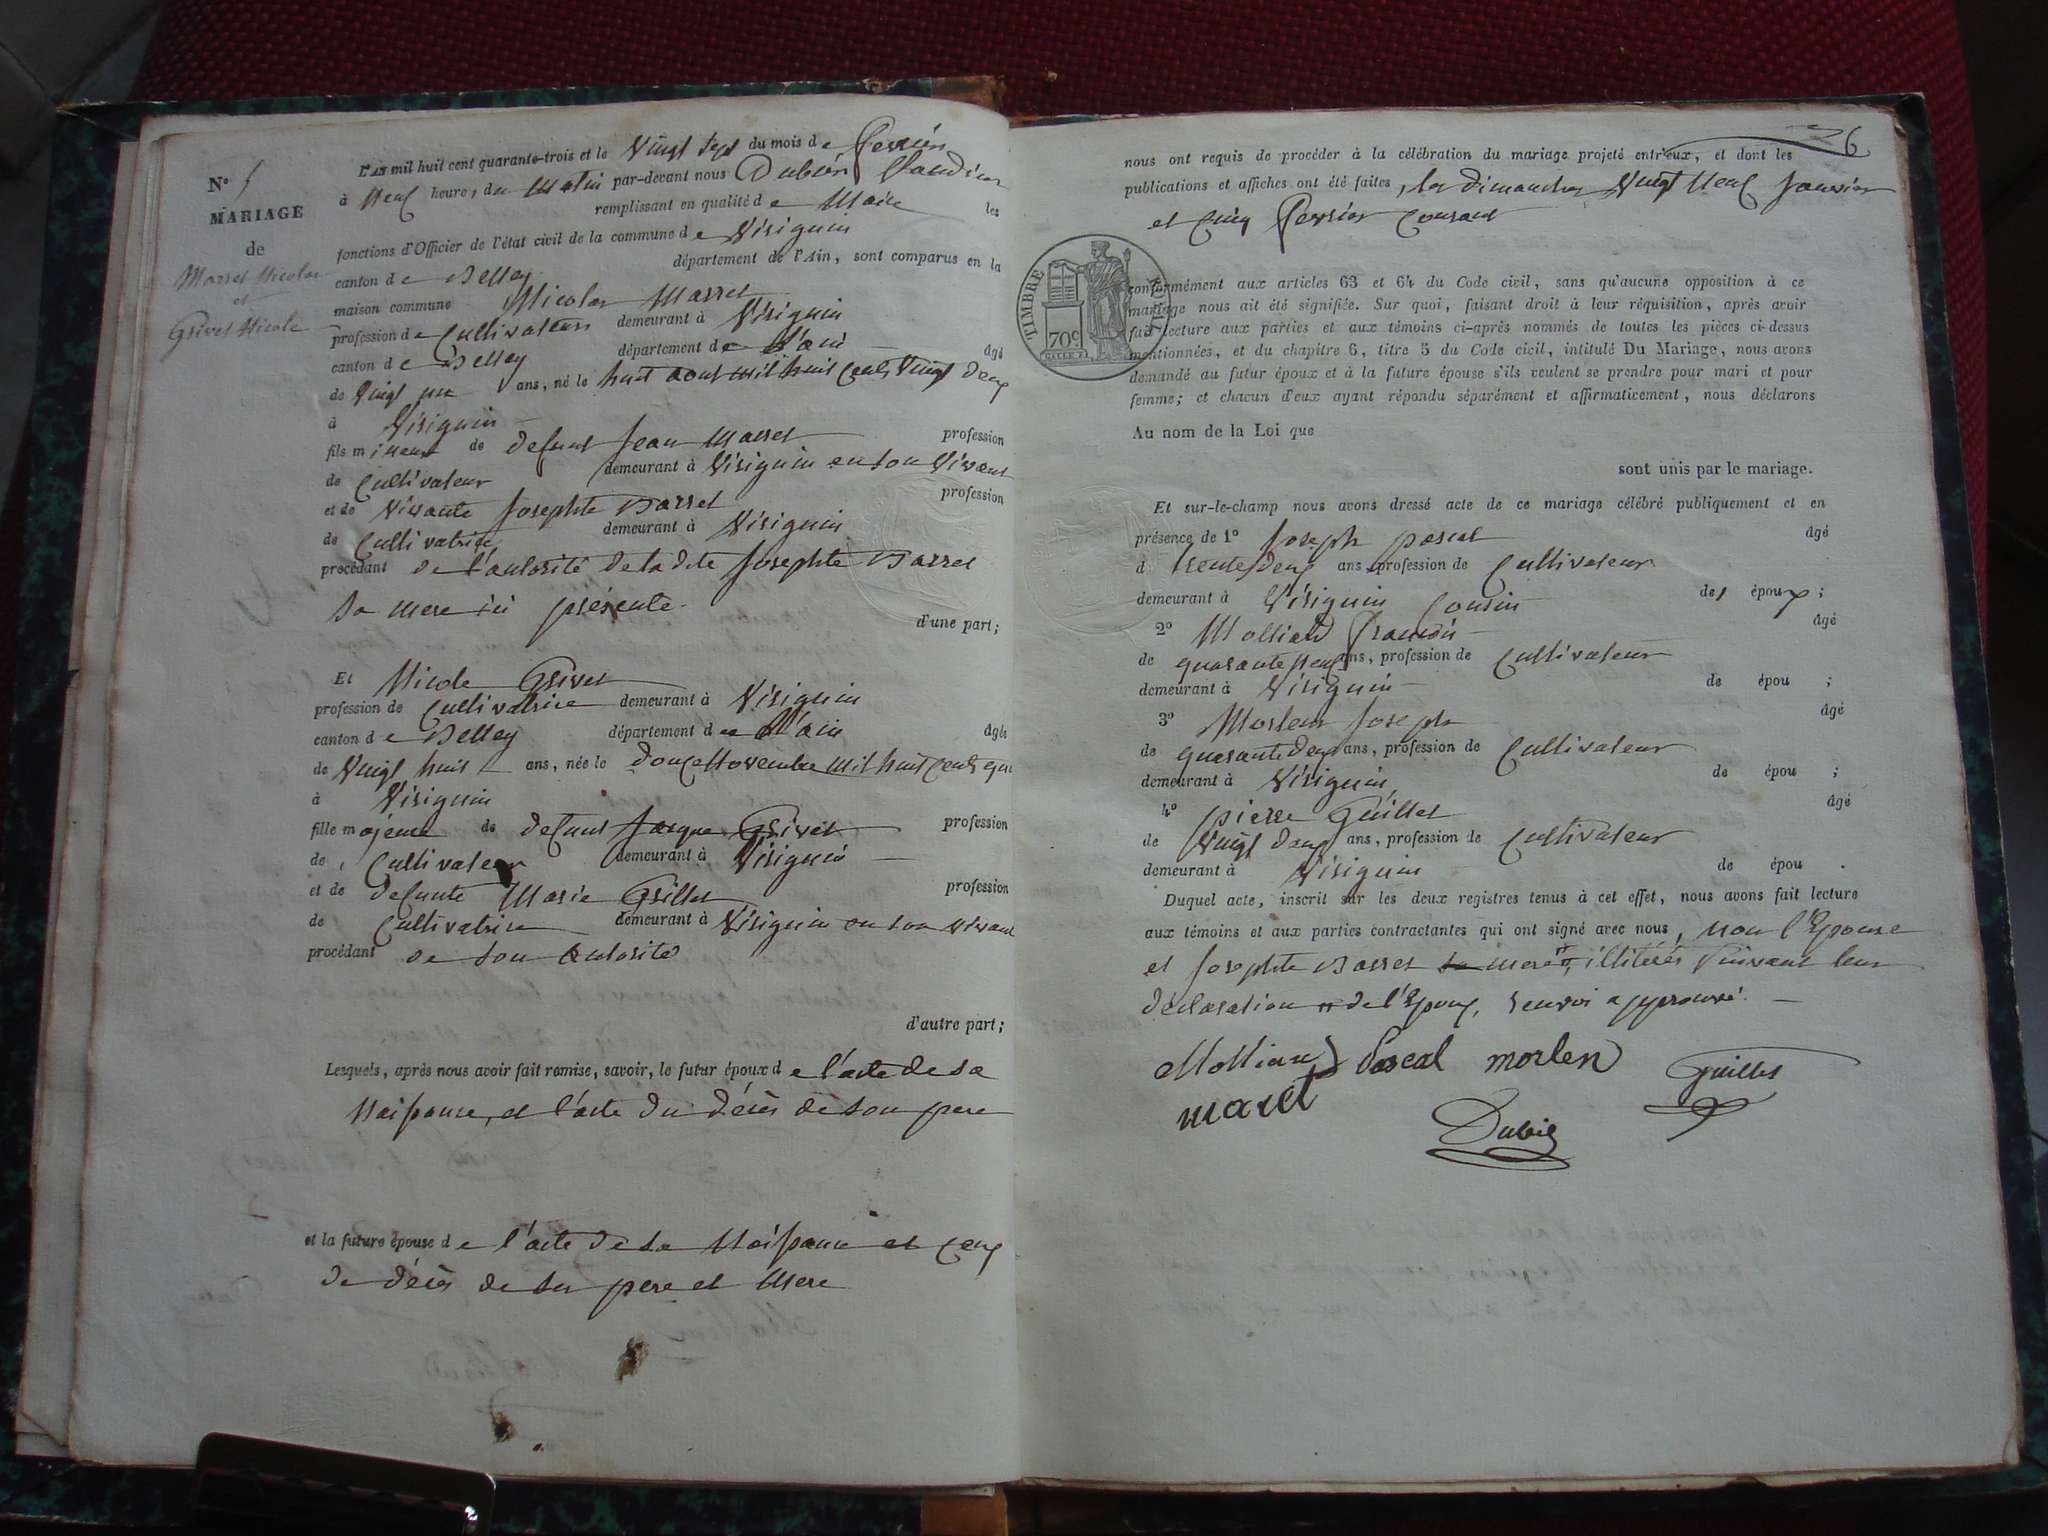 N° 5
MARIAGE
de
Marret Nicolas
et
Grivet Nicole
L'an mil huit cent quarante-trois et le vingt sept du mois de fevrier
à neuf heure, du matin par-devant nous Dubien Claudius
remplissant en qualité de Maire les
fonctions d'Officier de l'état civil de la commune de Virignin
canton de Belley département de l'Ain, sont comparus en la
maison commune Nicolas Marret
profession de Cultivateur demeurant à Virignin
canton de Belley département de l'ain âgé
de vingt un ans, né le huit aout mil huit cent vingt deux
à Virignin
fils mineur de defunt Jean Marret profession
de Cultivateur demeurant à Virignin en son vivant
et de vivante Josephte Barret profession
de Cultivatrice demeurant à Virignin
procédant de l'autorité de la dite Josephte Barret
sa mere ici présente.
d'une part;
Et Nicole Grivet
profession de Cultivatrice demeurant à Virignin
canton de Belley département de l'ain âgée
de vingt huit ans, née le douze novembre mil huit cent
à Virignin
fille majeure de defunt Jacque Grivet profession
de Cultivateur demeurant à Virignin
et de defunte Marie Grillet profession
de Cultivatrice demeurant à Virignin en son vivant
procédant de son autorité
d'autre part;
Lesquels, après nous avoir fait remise, savoir, le futur époux de l'acte de sa
naissance, et l'acte du décès de son pere
et la future épouse de l'acte de sa naissance et ceux
de décès de ses pere et mere
26
nous ont requis de procéder à la célébration du mariage projeté entr'eux, et dont les
publications et affiches ont été faites, les dimanches vingt neuf janvier
et cinq fevrier courant
TIMBRE ROYAL
70c
conformément aux articles 63 et 64 du Code civil, sans qu'aucune opposition à ce
mariage nous ait été signifiée. Sur quoi, faisant droit à leur réquisition, après avoir
fait lecture aux parties et aux témoins ci-après nommés de toutes les pièces ci-dessus
mentionnées, et du chapitre 6, titre 5 du Code civil, intitulé Du Mariage, nous avons
demandé au futur époux et à la future épouse s'ils veulent se prendre pour mari et pour
femme; et chacun d'eux ayant répondu séparément et affirmativement, nous déclarons
Au nom de la Loi que
sont unis par le mariage.
Et sur-le-champ nous avons dressé acte de ce mariage célébré publiquement et en
présence de 1° Joseph pascal âgé
de trente deux ans, profession de Cultivateur
demeurant à Virignin Cousin de l époux;
2° Molliard françois âgé
de quarante neuf ans, profession de Cultivateur
demeurant à Virignin de épou ;
3° Morteur Joseph âgé
de quarante deux ans, profession de Cultivateur
demeurant à Virignin de épou ;
4° pierre Guillet âgé
de vingt deux ans, profession de Cultivateur
demeurant à Virignin de épou .
Duquel acte, inscrit sur les deux registres tenus à cet effet, nous avons fait lecture
aux témoins et aux parties contractantes qui ont signé avec nous, non l'Epouse
et Josephte Barret sa mere illitérés suivant leur
déclaration de l'Epoux, renvoi approuvé.
Molliard Pascal morten Guillet
maret
Dubié